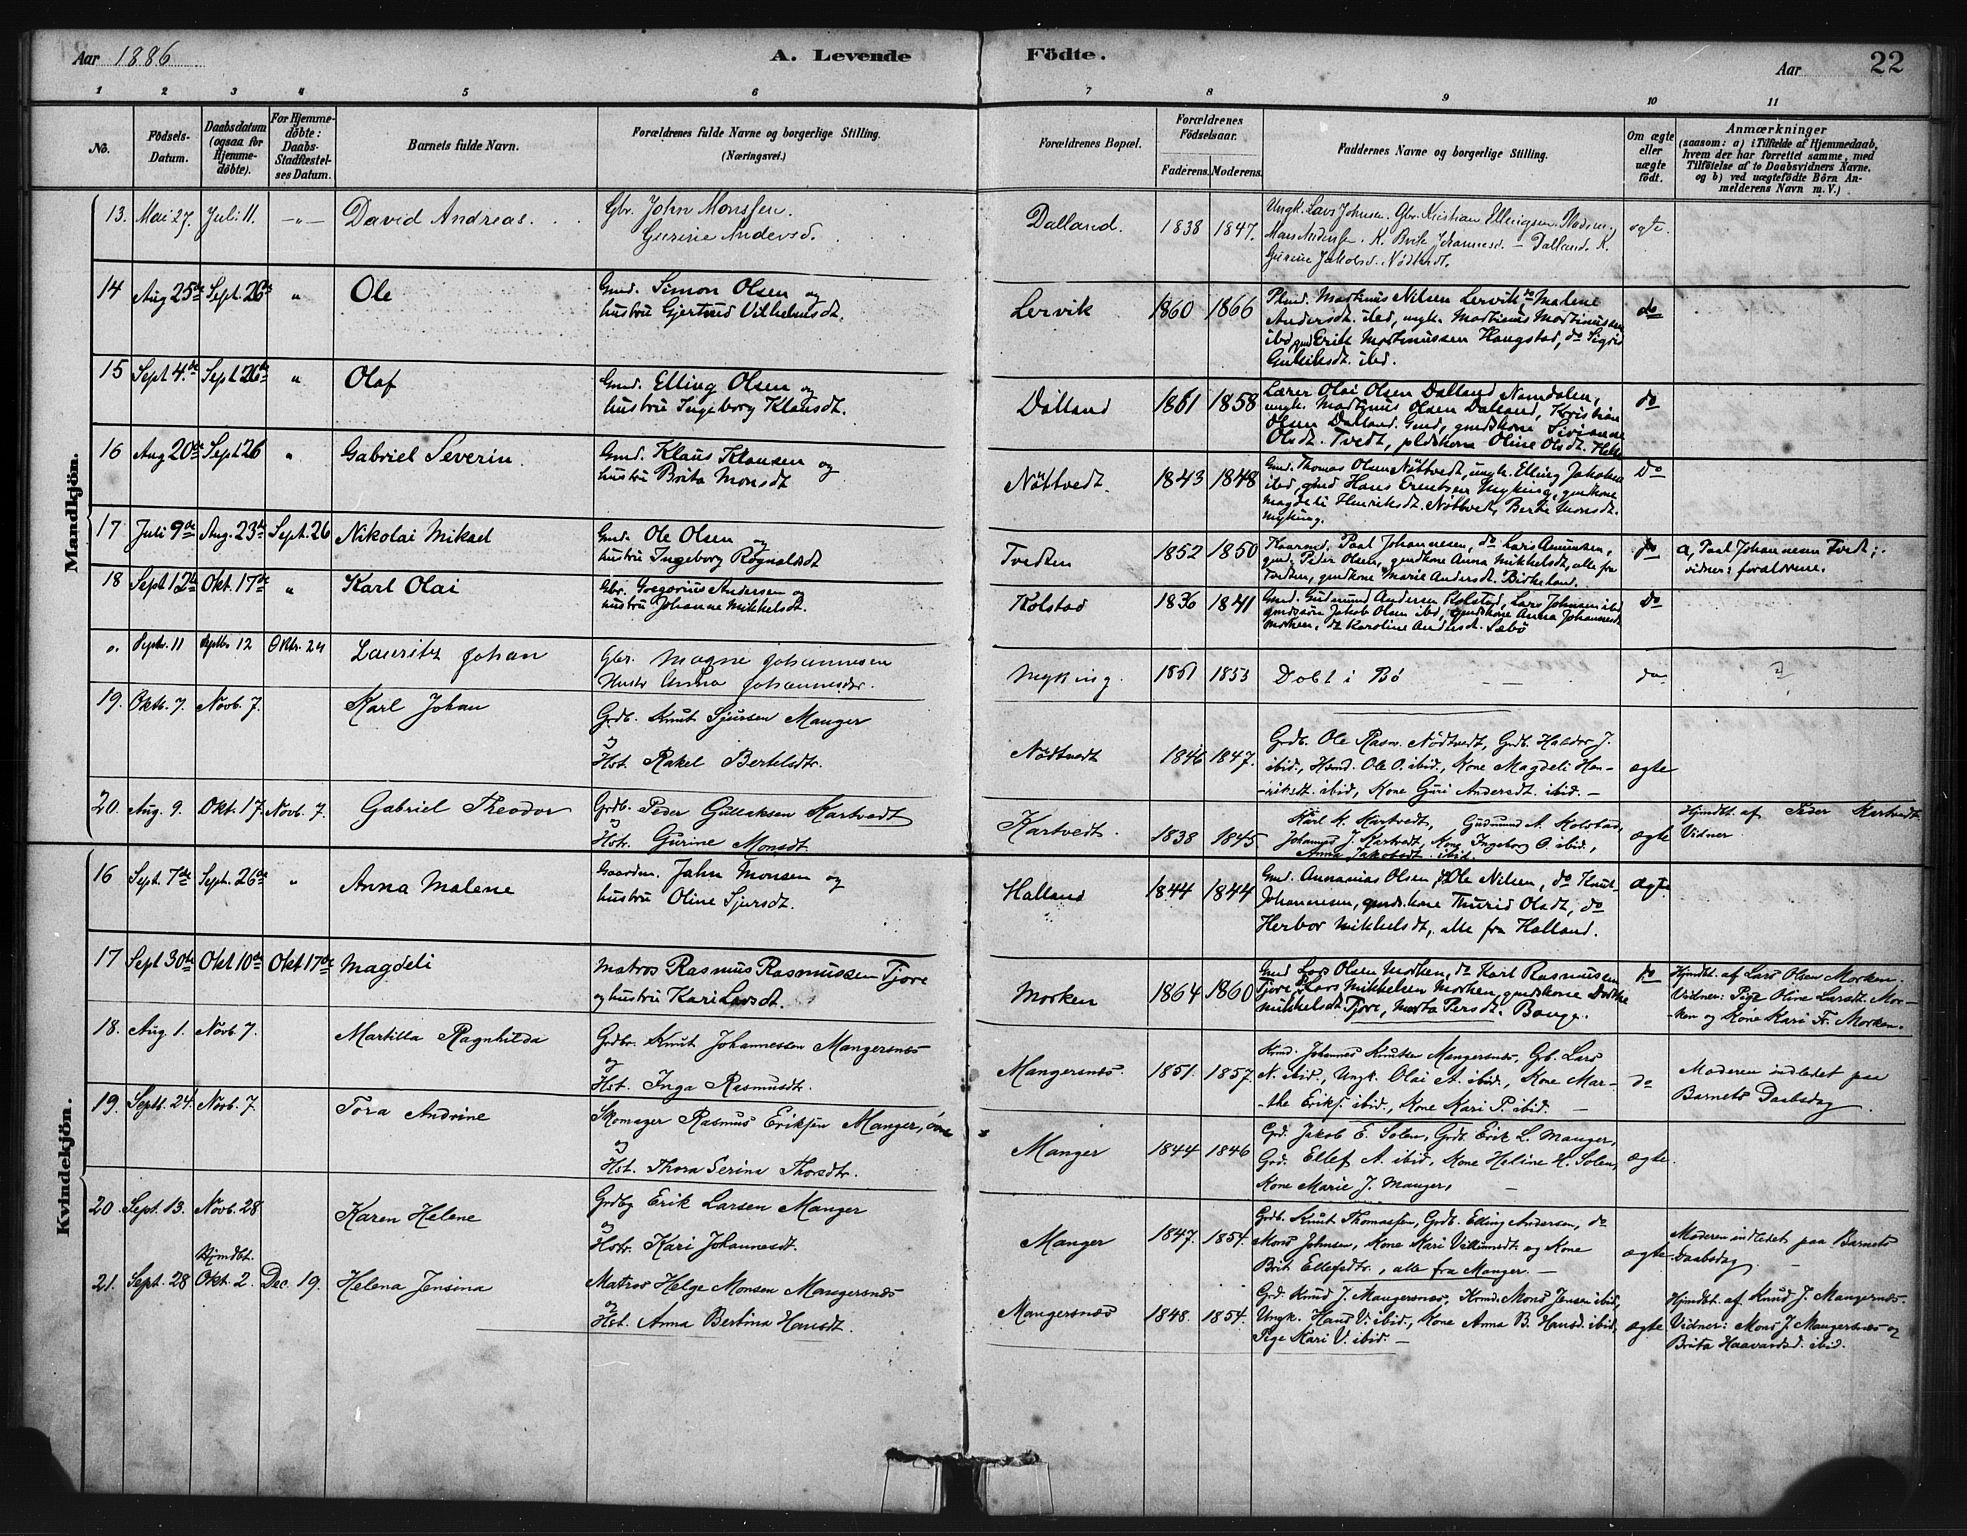 Aar 1886
A. Levende Födte.
Aar
22
1 2 3 4 5 6 7 8 9 10 11
No.
Födsels-Datum.
Daabsdatum (ogsaa for Hjemmedöbte).
For Hjemmedöbte: Daabs-Stadfæstelses Datum.
Barnets fulde Navn.
Forældrenes fulde Navne og borgerlige Stilling. (Næringsvei.)
Forældrenes Bopæl.
Forældrenes Födselsaar.
Faderens. Moderens.
Faddernes Navne og borgerlige Stilling.
Om ægte eller uægte födt.
Anmærkninger
(saasom: a) i Tilfælde af Hjemmedaab, hvem der har forrettet samme, med Tilföielse af to Daabsvidners Navne, og b) ved uægtefödte Börn Anmelderens Navn m. V.)
Mandkjön.
13. Mai 27. Juli 11. —"— David Andreas. Gbr. John Monssen. Dalland. 1838 1847. Ungk. Lars Johnsen. Gbr. Kristian Ellingsen
Gurine Andersd. Mons Anderssen. K. Brite Johannesd. — Dalland. K. ægte.
Gurine Jakobsd.
14 Aug 25de Sept. 26de " Ole Gmd. Simon Olsen og Lervik 1860 1866 Plmd. Martinus Nilsen Lervik, do Malene
hustru Gjertrud Vilhelmsdt. Andersdt. ibd, ungk. Martinus Martinussen do
ibd, gmd Erik Martinussen Haugstad, do Sigrid
ibd.
15 Sept 4de Sept 26de " Olaf Gmd. Elling Olsen og Dalland 1861 1858 Lærer Olai Olsen Dalland, Namdalen, do
hustru Ingeborg Klausdt. ungk. Martinus Olsen Dalland, Kristian
Olsen Dalland. Gmd, gmdskone
Olsdt. Tvedt, plskone Oline Olsdt.
16 Aug 20de Sept 26 " Gabriel Severin. Gmd. Klaus Klausen og Nöttvedt. 1843 1848 Gmd. Thomas Olsen Nöttvedt, ungk. Elling Jakobsen Do
hustru Brita Monsdt ibd, gmd Hans Myking, gmdkone
Magdeli Henriksdt. Nöttvedt, Berte Monsdt.
Myking.
17 Juli 9de Aug. 23de Sept. 26 Nikolai Mikael Gmd. Ole Olsen og Tvedten 1852 1850 Paal Johannesen, do Lars Amunsen, do a, Paal Johannesen Tvedt;
hustru Ingeborg Rognaldsdt gmd. Peder Olsen, gmdkone Anna Mikkelsdt, alle fra vidner: forældrene.
Tvedten, gmdkone Marie Andersdt. Birkeland.
18 Sept 12te Okt. 17de " Karl Olai Gbr. Gregorius Andersen og Kolstad 1836 1841 Gmd. Gudmund Andersen Kolstad, Lars Johnsen ibd Do
hustru Johanne Mikkelsdt. gmdssön Jakob Olsen ibd, gmdskone Anna Johannesdt
Morken, do Karoline Andersdt. Sæbö
o. Septbr. 11 Septbr 12 Oktbr. 24 Lauritz Johan Gbr. Magne Johannesen Myking. 1851 1853 Döbt i Bö — do
Hustr Anna Johannesdr.
19. Oktb. 7. Novb. 7. Karl Johan Grdb. Knut Sjursen Manger Nödtvedt 1846 1847. Grdb. Ole Rasm. Nödtvedt, Grdb. Haldor J.
og ibid., Hsmd. Ole O. ibid., Kone Magdeli Hen- ægte
Hst. Rakel Berteldtr. -riksdt. ibid, Kone Guri Andersdt. ibid. —
20. Aug. 9. Okt. 17. Novb. 7. Gabriel Theodor Grdb. Peder Gullaksen Kartvedt Kartvedt. 1838 1845 Karl N. Kartvedt, Gudmund A. Kolstad, Hjmdbt. af Peder Kartvedt
og Johannes J. Kartvedt, Kone Ingeborg O. ibid., ægte Vidner
Hst. Gurine Monsdt. Anna Jakobsdt. ibid.
Kvindekjön.
16 Sept. 7de Sept. 26de " Anna Malene Gaardm. John Monsen og Halland 1844 1844 Gmd. Annanias Olsen, do Ole Nilsen, do Knut ægte
hustru Oline Sjursdt. Johannesen, gmdskone Thurid Olsdt, do
Herbor Mikkelsdt, alle fra Halland.
17 Sept 30te Okt 10de Okt 17de Magdeli Matros Rasmus Rasmussen Tjore Morken 1864 1860 Gmd Lars Olsen Morken, do Karl Rasmussen do Hjmdbt. af Lars Olsen Morken;
og hustru Kari Larsdt. Tjore, do Lars Mikkelsen Morken, gmdskone Vidner: Pige Oline Larsdt. Mor-
Mikkelsdt Tjore, Marta Persdt. Bauge. -ken og Kone Kari Fr. Morken.
18. Aug 1. Novb. 7. Martilla Ragnhilda Grdbr. Knut Johannessen Mangersnes Mangersnæs. 1851. 1857. Johannes Knutsen Mangersnæs, Gb. Lars Moderen indledet paa
og N. ibid., Ungk. Olai A. ibid., Kone Mar- do Barnets Daabsdag
Hst. Inga Rasmusdtr. -the Eriks. ibid., Kone Kari P. ibid. —
19. Septb. 24. Novb. 7 Tora Andrine Skomager Rasmus Eriksen Manger, Manger 1844 1846 Grd. Jakob E. Solen, Grdb. Erik L. Manger,
og Grd. Ellef A. ibid., Kone Heline H. Solen, ægte.
Hst. Thora Serina Thorsdtr. Kone Marie J. Manger, —
20 Sept. 13. Novb. 28 Karen Helene Grdbg Erik Larsen Manger Manger 1847. 1854. Grdb. Knut Thomassen, Grdb. Elling Andersen, do Moderen indledet paa Barnets
og Mons Johnsen, Kone Kari Villumsdt. og Kone ægte Daabsdag —
Hstr. Kari Johannesdt. Brit Ellefsdtr., alle fra Manger. —
21. Sept. 28 Hjmdbt. Okt. 2. Dec. 19. Helena Jensina Matros Helge Monsen Mangersnæs Mangersnæs 1848. 1854. Grd. Knud J. Mangersnæs, Mons Jensen ibid, Hjmdbt. af Knud J. Mangersnæs.
og Ungk. Hans V. ibid, Kone Anna B. Hansd. ibid, ægte Vidner: Mons J. Mangersnæs og
Hst. Anna Bertina Hansdt. Pige Kari V. ibid — Brita Haavardsd. ibid.